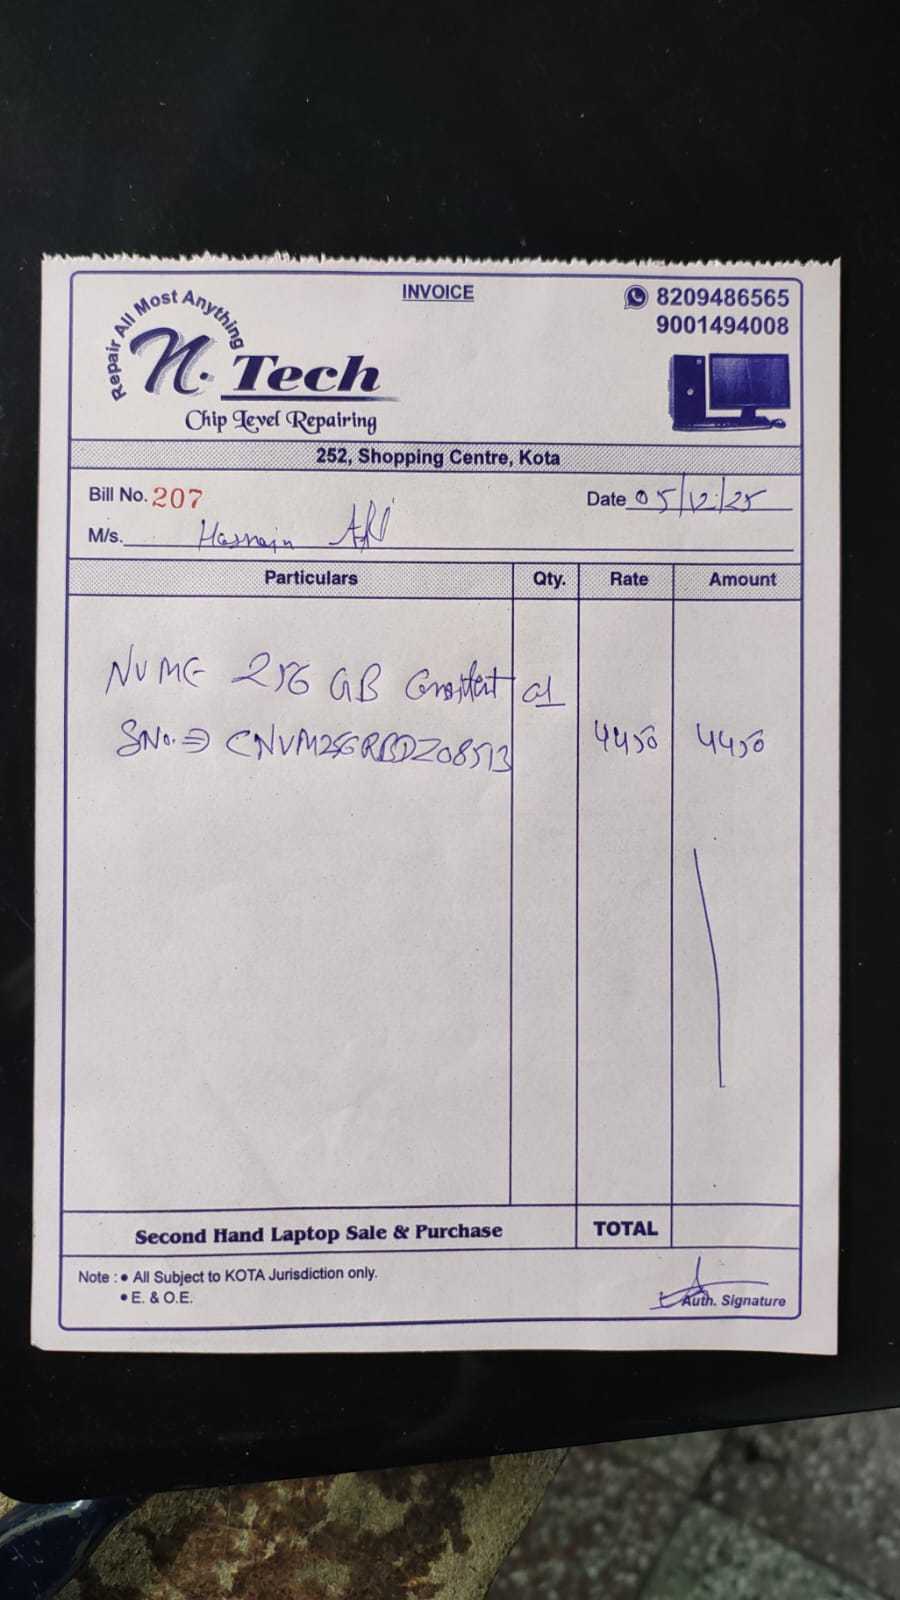 INVOICE
8209486565
9001494008
Repair All Most Anything
N. Tech
Chip Level Repairing
252, Shopping Centre, Kota
Bill No. 207
Date 05/12/25
M/s. Hasnain
Particulars Qty. Rate Amount
NVME 256 GB Consistent 01
SNo. ⇒ CNVM256RBDZ08513 4450 4450
Second Hand Laptop Sale & Purchase TOTAL
Note : • All Subject to KOTA Jurisdiction only.
• E. & O.E.
Auth. Signature